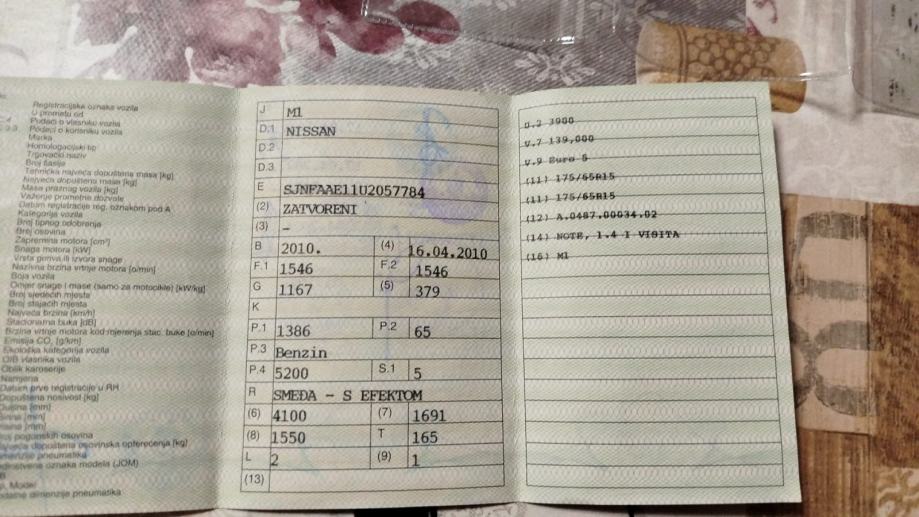 Registracijska oznaka vozila
U prometu od
Podaci o vlasniku vozila
Podaci o korisniku vozila
Marka
Homologacijski tip
Trgovački naziv
Broj šasije
Tehnička najveća dopuštena masa [kg]
Najveća dopuštena masa [kg]
Masa praznog vozila [kg]
Važenje prometne dozvole
Datum registracije reg. oznakom pod A
Kategorija vozila
Broj tipnog odobrenja
Broj osovina
Zapremina motora [cm³]
Snaga motora [kW]
Vrsta goriva ili izvora snage
Nazivna brzina vrtnje motora [o/min]
Boja vozila
Omjer snage i mase (samo za motocikle) [kW/kg]
Broj sjedećih mjesta
Broj stajaćih mjesta
Najveća brzina [km/h]
Stacionarna buka [dB]
Brzina vrtnje motora kod mjerenja stac. buke [o/min]
Emisija CO₂ [g/km]
Ekološka kategorija vozila
OIB vlasnika vozila
Oblik karoserije
Namjena
Datum prve registracije u RH
Dopuštena nosivost [kg]
[mm]
[mm]
[mm]
pogonskih osovina
dopuštena osovinska opterećenja [kg]
pneumatika
oznaka modela (JOM)
Model
dimenzije pneumatika
J M1
D.1 NISSAN
D.2
D.3
E SJNFAAE11U2057784
(2) ZATVORENI
(3) –
B 2010. (4) 16.04.2010
F.1 1546 F.2 1546
G 1167 (5) 379
K
P.1 1386 P.2 65
P.3 Benzin
P.4 5200 S.1 5
R SMEĐA - S EFEKTOM
(6) 4100 (7) 1691
(8) 1550 T 165
L 2 (9) 1
(13)
U.2 3900
V.7 139,000
V.9 Euro 5
(11) 175/65R15
(11) 175/65R15
(12) A.0487.00034.02
(14) NOTE, 1.4 I VISITA
(16) M1